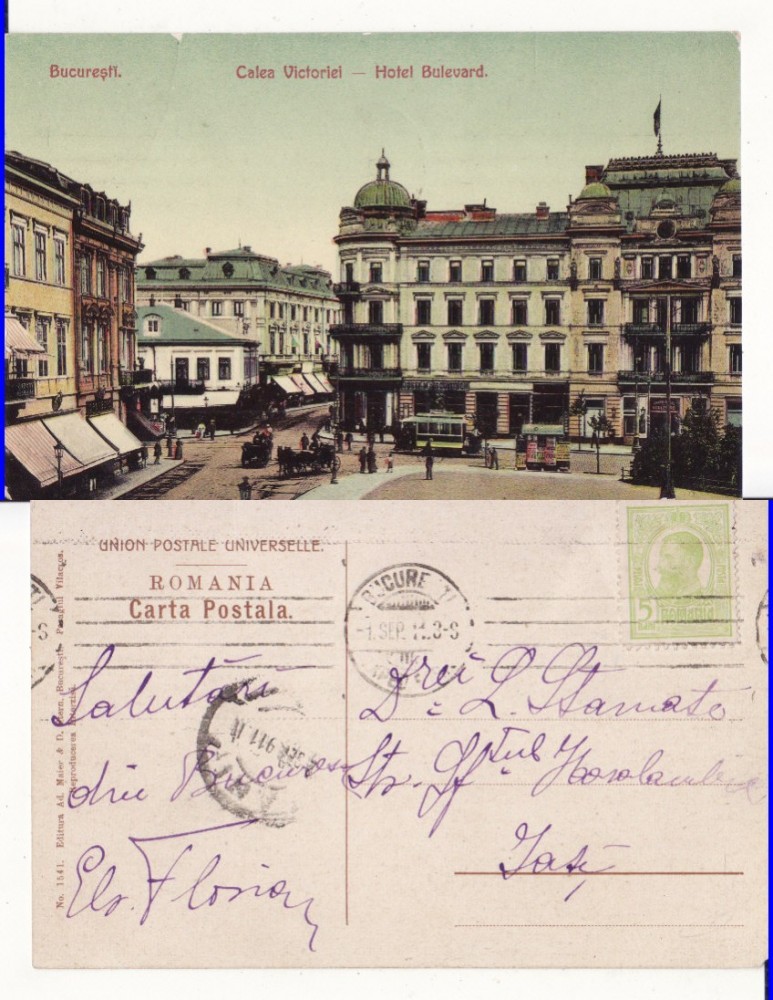 Bucureşti. Calea Victoriei — Hotel Bulevard.
UNION POSTALE UNIVERSELLE.
ROMANIA
Carta Postala.
No. 1541. Editura Ad. Maier & D. Stern, Bucureşti. Pasagiul Vilacros.
Reproducerea
BUCUREŞTI
-1.SEP. 11.3-S
POSTA
ROMANIA
5 BANI
SEP 911
Salutări
din Bucuresti
Florian
D-rei L. Stamate
Str. Sf-tul
Iaşi